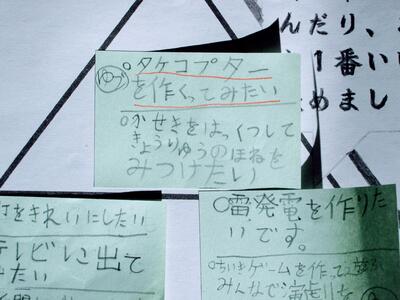 んだり、
1番い
めまし
○タケコプター
ゆう
を作ってみたい
○かせきをはっくつして
きょうりゅうのほねを
みつけたい
をきれいにしたい
テレビに出て
みたい
○雷発電を作りた
いです。
○ちいきゲームを作って遊ぶ
みんなで